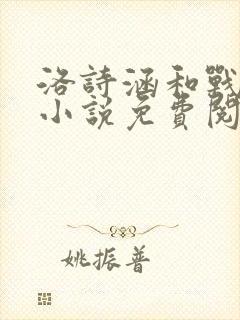 洛詩涵和戰
小說免費閱
姚振普